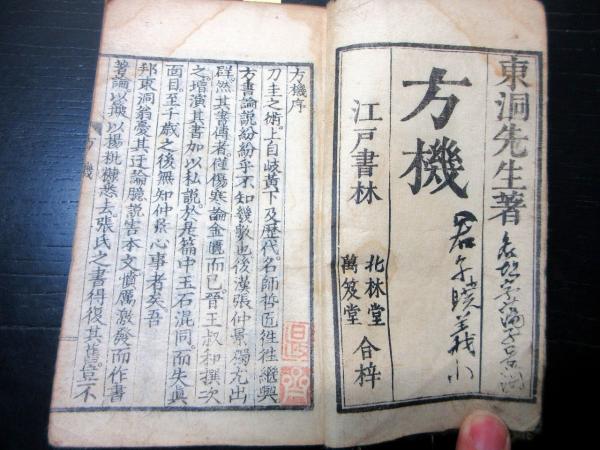 東洞先生著
方機
江戸書林
北林堂
萬笈堂
合梓
方機序
刀圭之術上自岐黃下及歷代名師哲匠往往繼興
方書論說紛紛乎不知幾數也後漢張仲景獨尤出
群然其書傳者僅傷寒論金匱而已晉王叔和撰次
之增演其書加以私說於是篇中玉石混同而失眞
面目至千歲之後無知仲景心事者矣吾
邦東洞翁憂其迂論臆說害本文憤厲激發而作書
著論以
以楊粃糠悉去張氏之書再復其舊豈不
方機